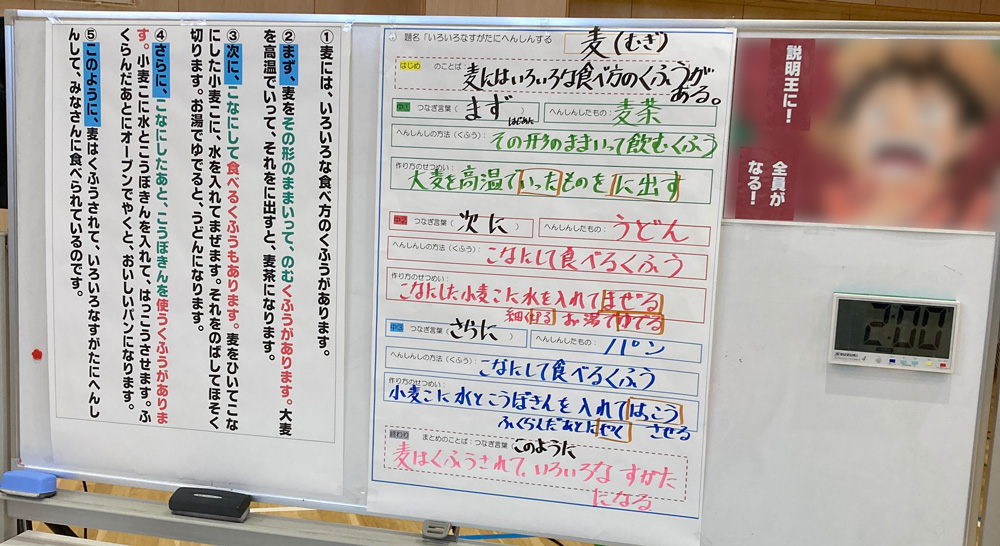 ①麦には、いろいろな食べ方のくふうがあります。
②まず、麦をその形のままいって、のむくふうがあります。大麦
を高温でいって、それをに出すと、麦茶になります。
③次に、こなにして食べるくふうもあります。麦をひいてこな
にした小麦こに、水を入れてまぜます。それをのばしてほそく
切ります。お湯でゆでると、うどんになります。
④さらに、こなにしたあと、こうぼきんを使うくふうがありま
す。小麦こに水とこうぼきんを入れて、はっこうさせます。ふ
くらんだあとにオーブンでやくと、おいしいパンになります。
⑤このように、麦はくふうされて、いろいろなすがたにへんし
んして、みなさんに食べられているのです。
題名「いろいろなすがたにへんしんする 麦(むぎ)
はじめ のことば: 麦にはいろいろな食べ方のくふうが
ある。
中1 つなぎ言葉( まず はじめに ) へんしんしたもの: 麦茶
へんしんの方法(くふう): その形のままいって飲むくふう
作り方のせつめい:
大麦を高温でいったものをに出す
中2 つなぎ言葉( 次に ) へんしんしたもの: うどん
へんしんの方法(くふう): こなにして食べるくふう
作り方のせつめい:
こなにした小麦こに水を入れてまぜる
細く切る お湯でゆでる
中3 つなぎ言葉( さらに ) へんしんしたもの: パン
へんしんの方法(くふう): こなにして食べるくふう
作り方のせつめい:
小麦こに水とこうぼきんを入れてはっこう
させる
ふくらんだあとにやく
終わり まとめのことば:つなぎ言葉( このように
麦はくふうされて、いろいろなすがた
になる
説明王に!
全員が
なる!
2:00